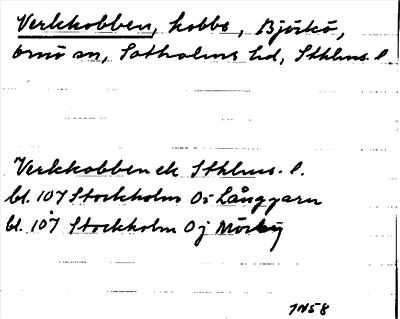 Verkkobben, kobbe, Björkö,
Ornö sn, Sotholms hd, Sthlms l.
Verkkobben ek Sthlms l.
bl. 107 Stockholm Oi Långgarn
bl. 107 Stockholm Oj Mörby
JN58